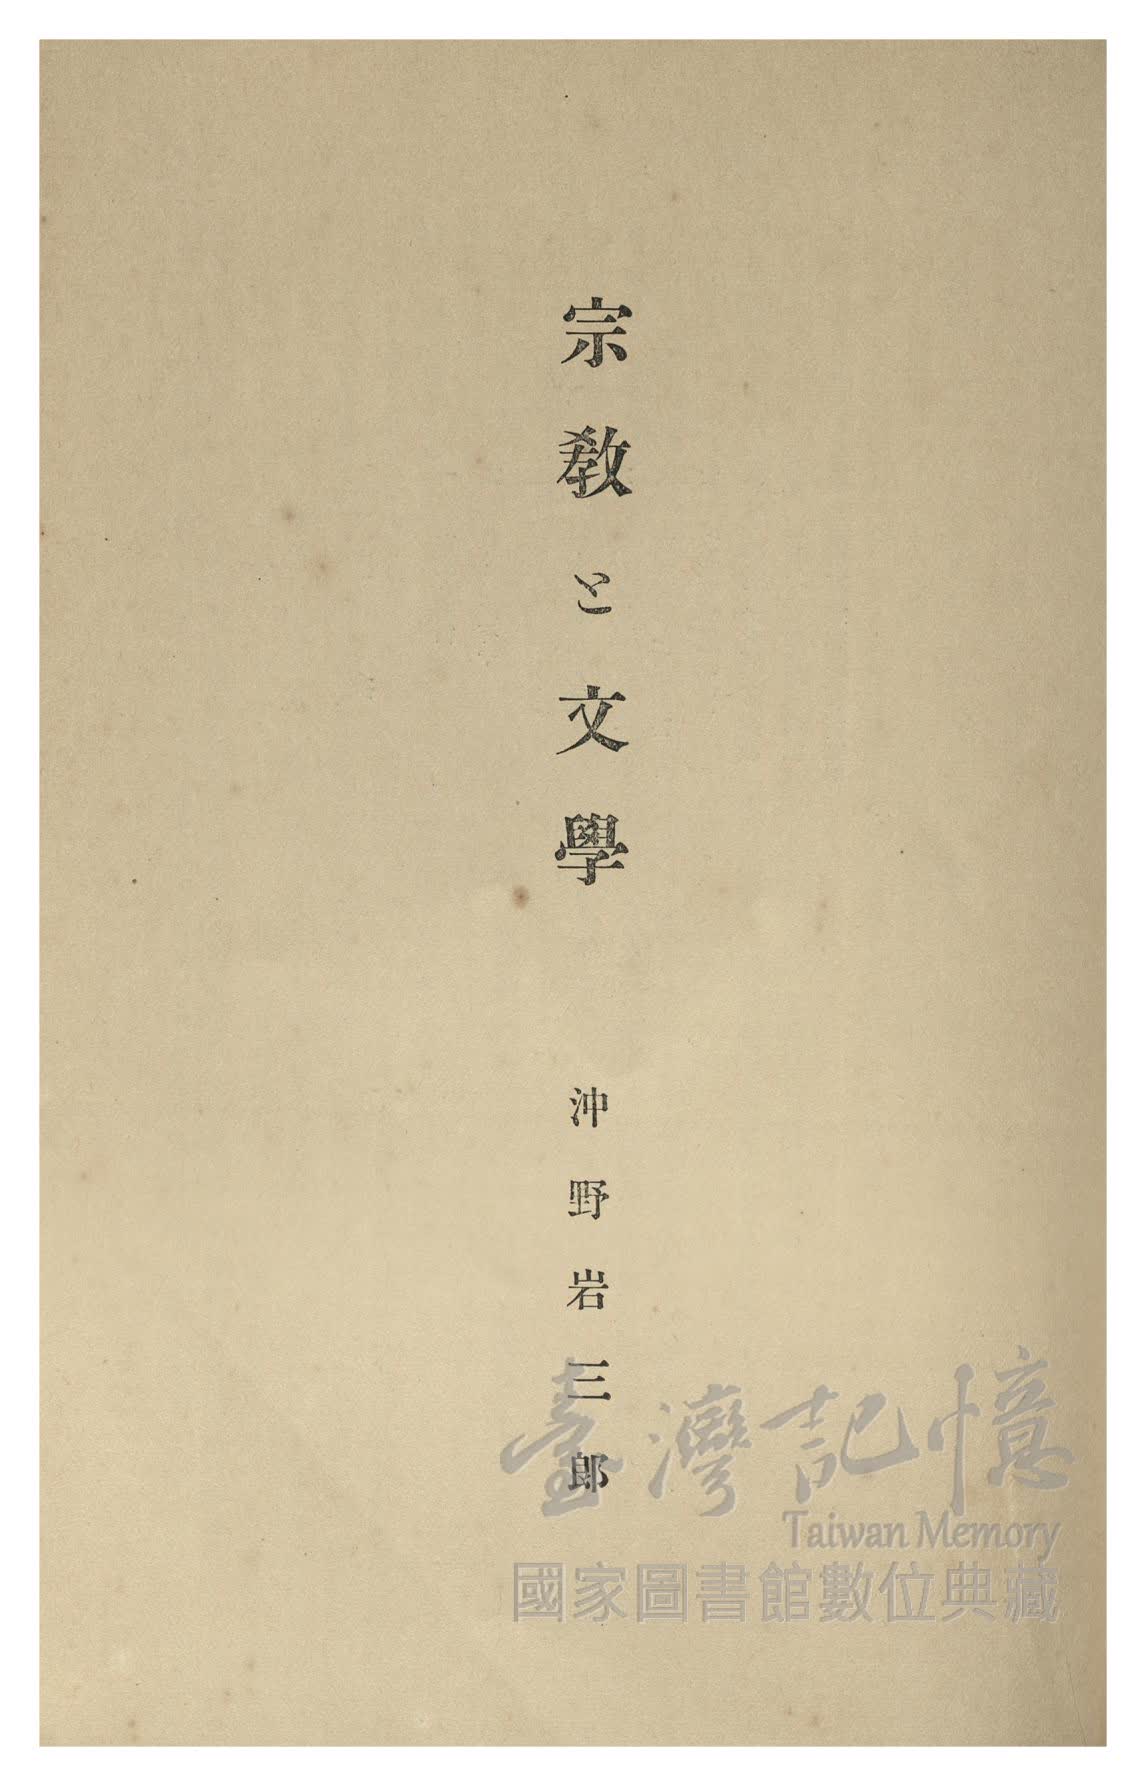 宗教と文學
沖野岩三郎
臺灣記憶
Taiwan Memory
國家圖書館數位典藏